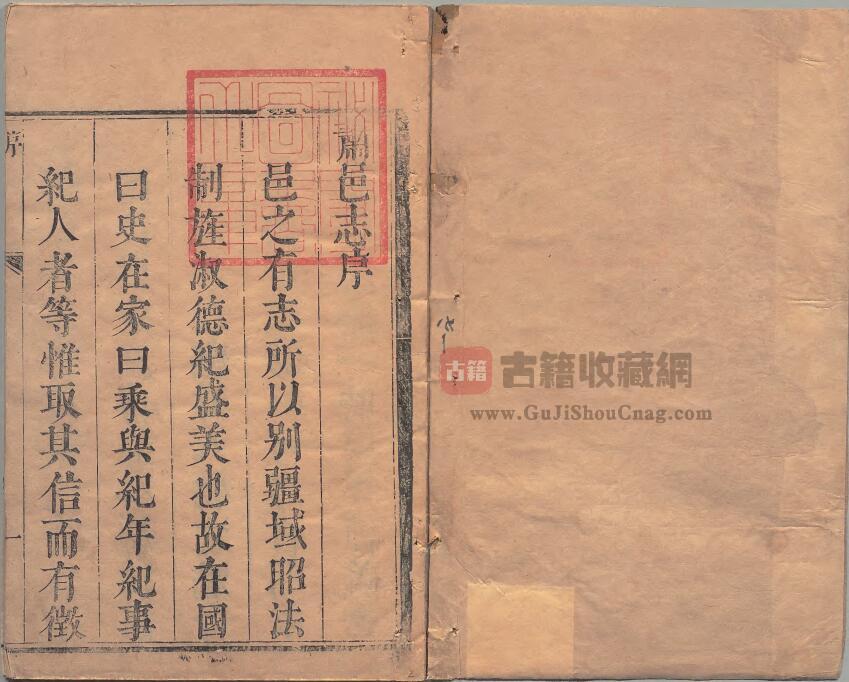 肅邑志序
邑之有志所以別疆域昭法
制旌淑德紀盛美也故在國
曰史在家曰乘與紀年紀事
紀人者等惟取其信而有徵
序
一
古籍
古籍收藏網
www.GuJiShouCnag.com